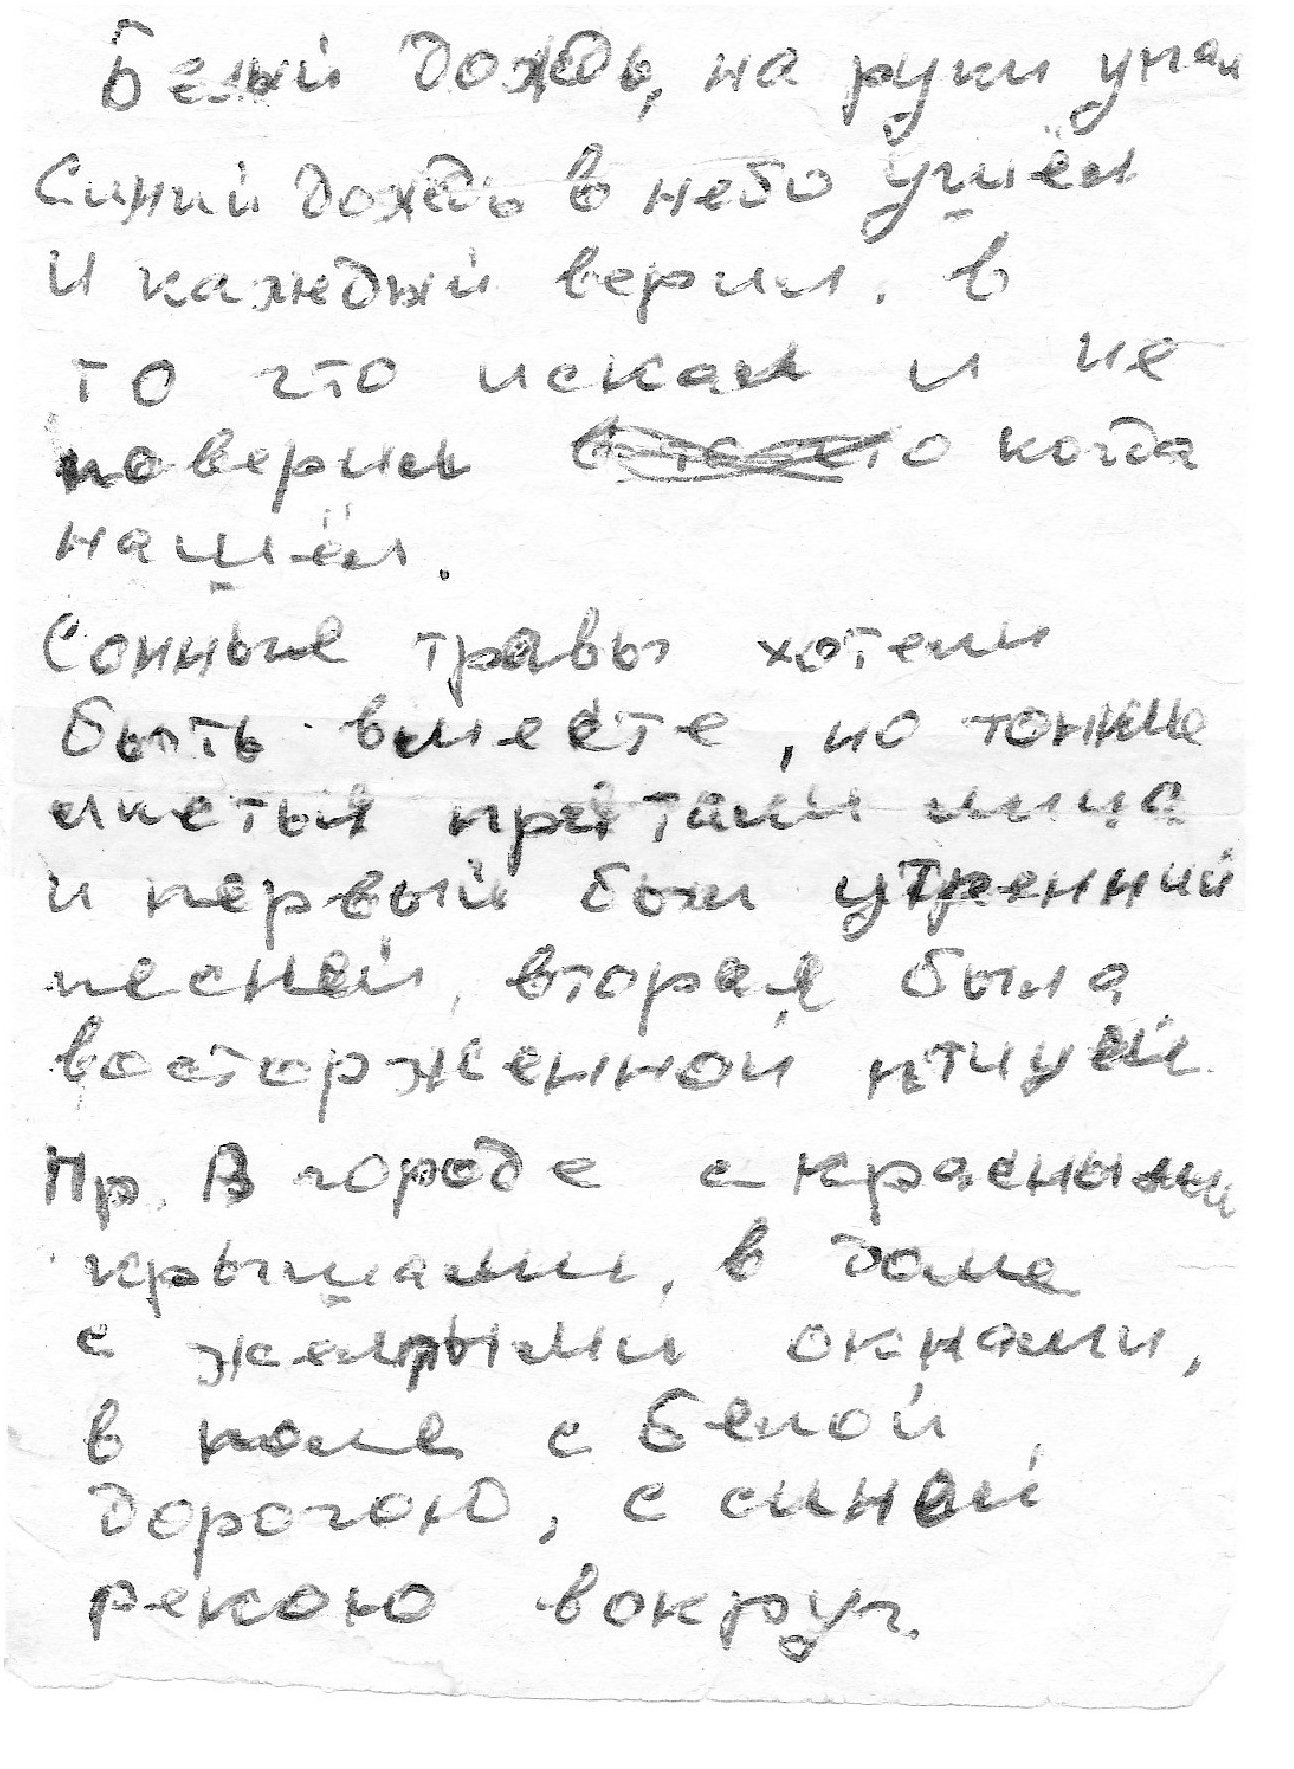 Белый дождь, на руки упал
Синий дождь в небо ушёл
И каждый верил. в
то что искал и не
поверил когда
нашёл.
Сонные травы хотели
быть вместе, но тонкие
листья прятали лица
и первый был утренний
песней, вторая была
восторженной птицей
Пр. В городе с красными
крышами, в доме
с желтыми окнами,
в поле с белой
дорогою, с синей
рекою вокруг.